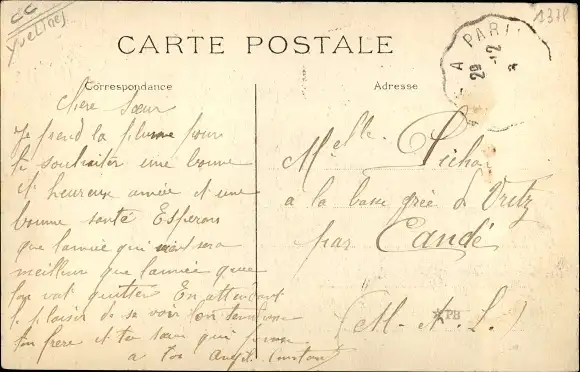 CC
Yvelines
1378
CARTE POSTALE
Correspondance
Adresse
A PARI
29 -12
Chère Sœur
Je prend la plume pour
te souhaiter une bonne
et heureuse année et une
bonne santé Esperons
que l'année qui vient sera
meilleur que l'année que
l'on vat quitter En attendant
le plaisir de se voir
ton frere et ta sœur qui pense
a toi
Melle Picha
a la basse grée de Vritz
par Candé
(M. et. L.)
PB